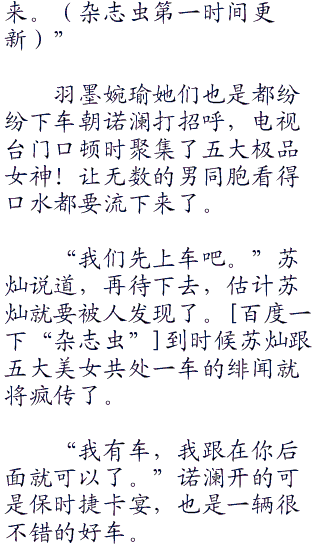 来。（杂志虫第一时间更
新）”
羽墨婉瑜她们也是都纷
纷下车朝诺澜打招呼，电视
台门口顿时聚集了五大极品
女神！让无数的男同胞看得
口水都要流下来了。
“我们先上车吧。”苏
灿说道，再待下去，估计苏
灿就要被人发现了。[百度一
下“杂志虫”]到时候苏灿跟
五大美女共处一车的绯闻就
将疯传了。
“我有车，我跟在你后
面就可以了。”诺澜开的可
是保时捷卡宴，也是一辆很
不错的好车。